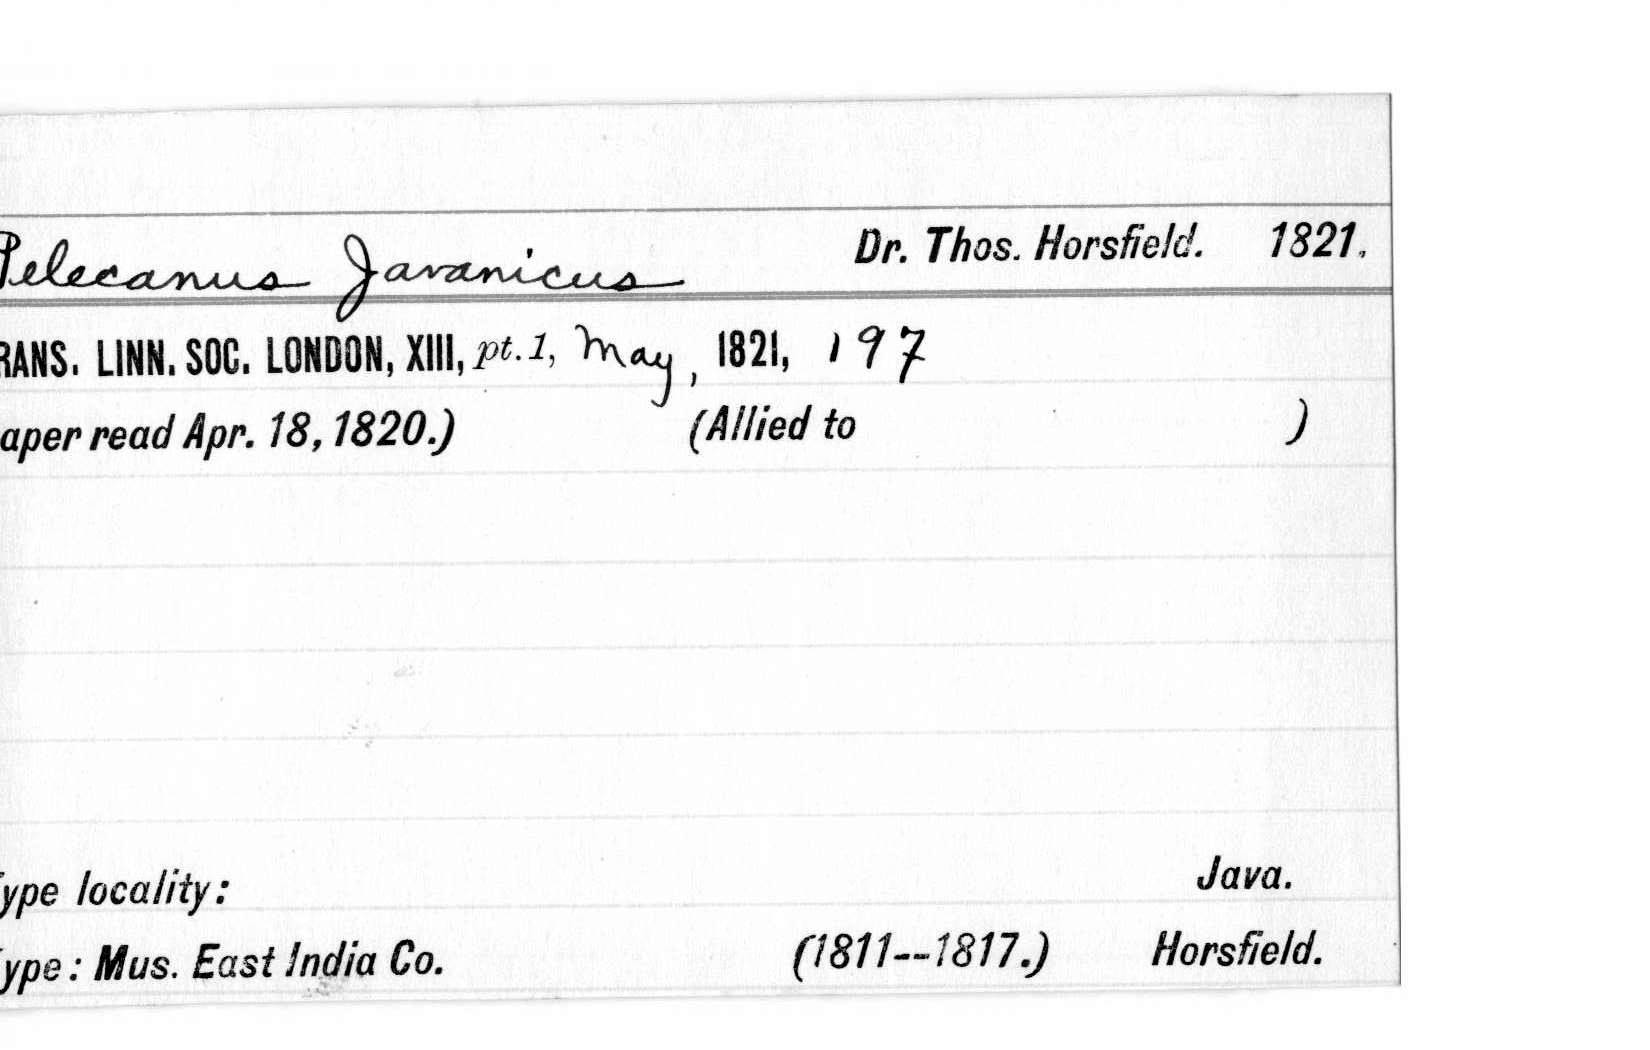 Pelecanus Javanicus Dr. Thos. Horsfield. 1821.
RANS. LINN. SOC. LONDON, XIII, pt. 1, May, 1821, 197
aper read Apr. 18, 1820.) (Allied to )
ype locality: Java.
ype: Mus. East India Co. (1811--1817.) Horsfield.